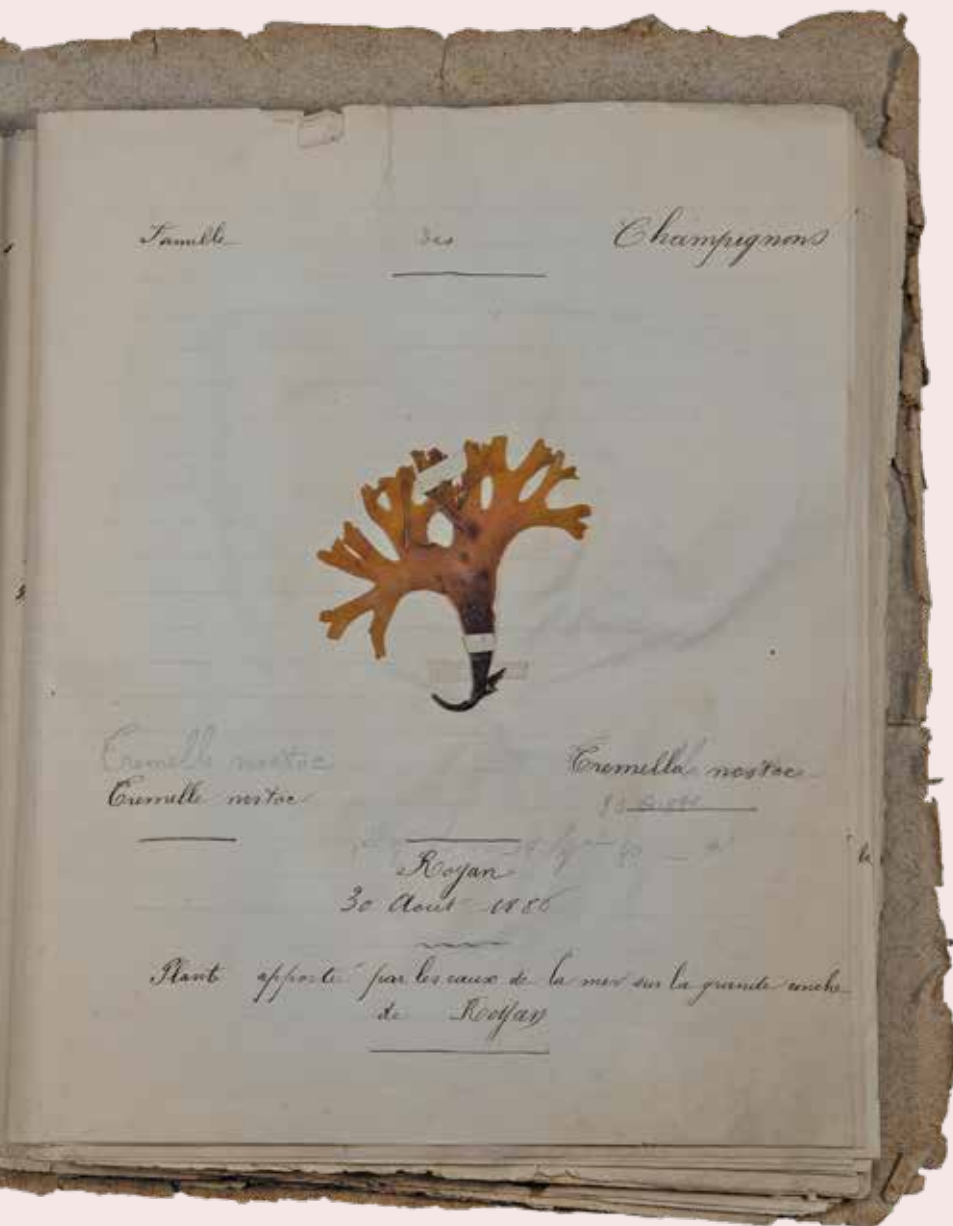 Famille des Champignons
Tremelle nostoc Tremella nostoc
Tremelle nostoc
Royan
30 Aout 1886
Plant apporté par les eaux de la mer sur la grande conche
de Royan